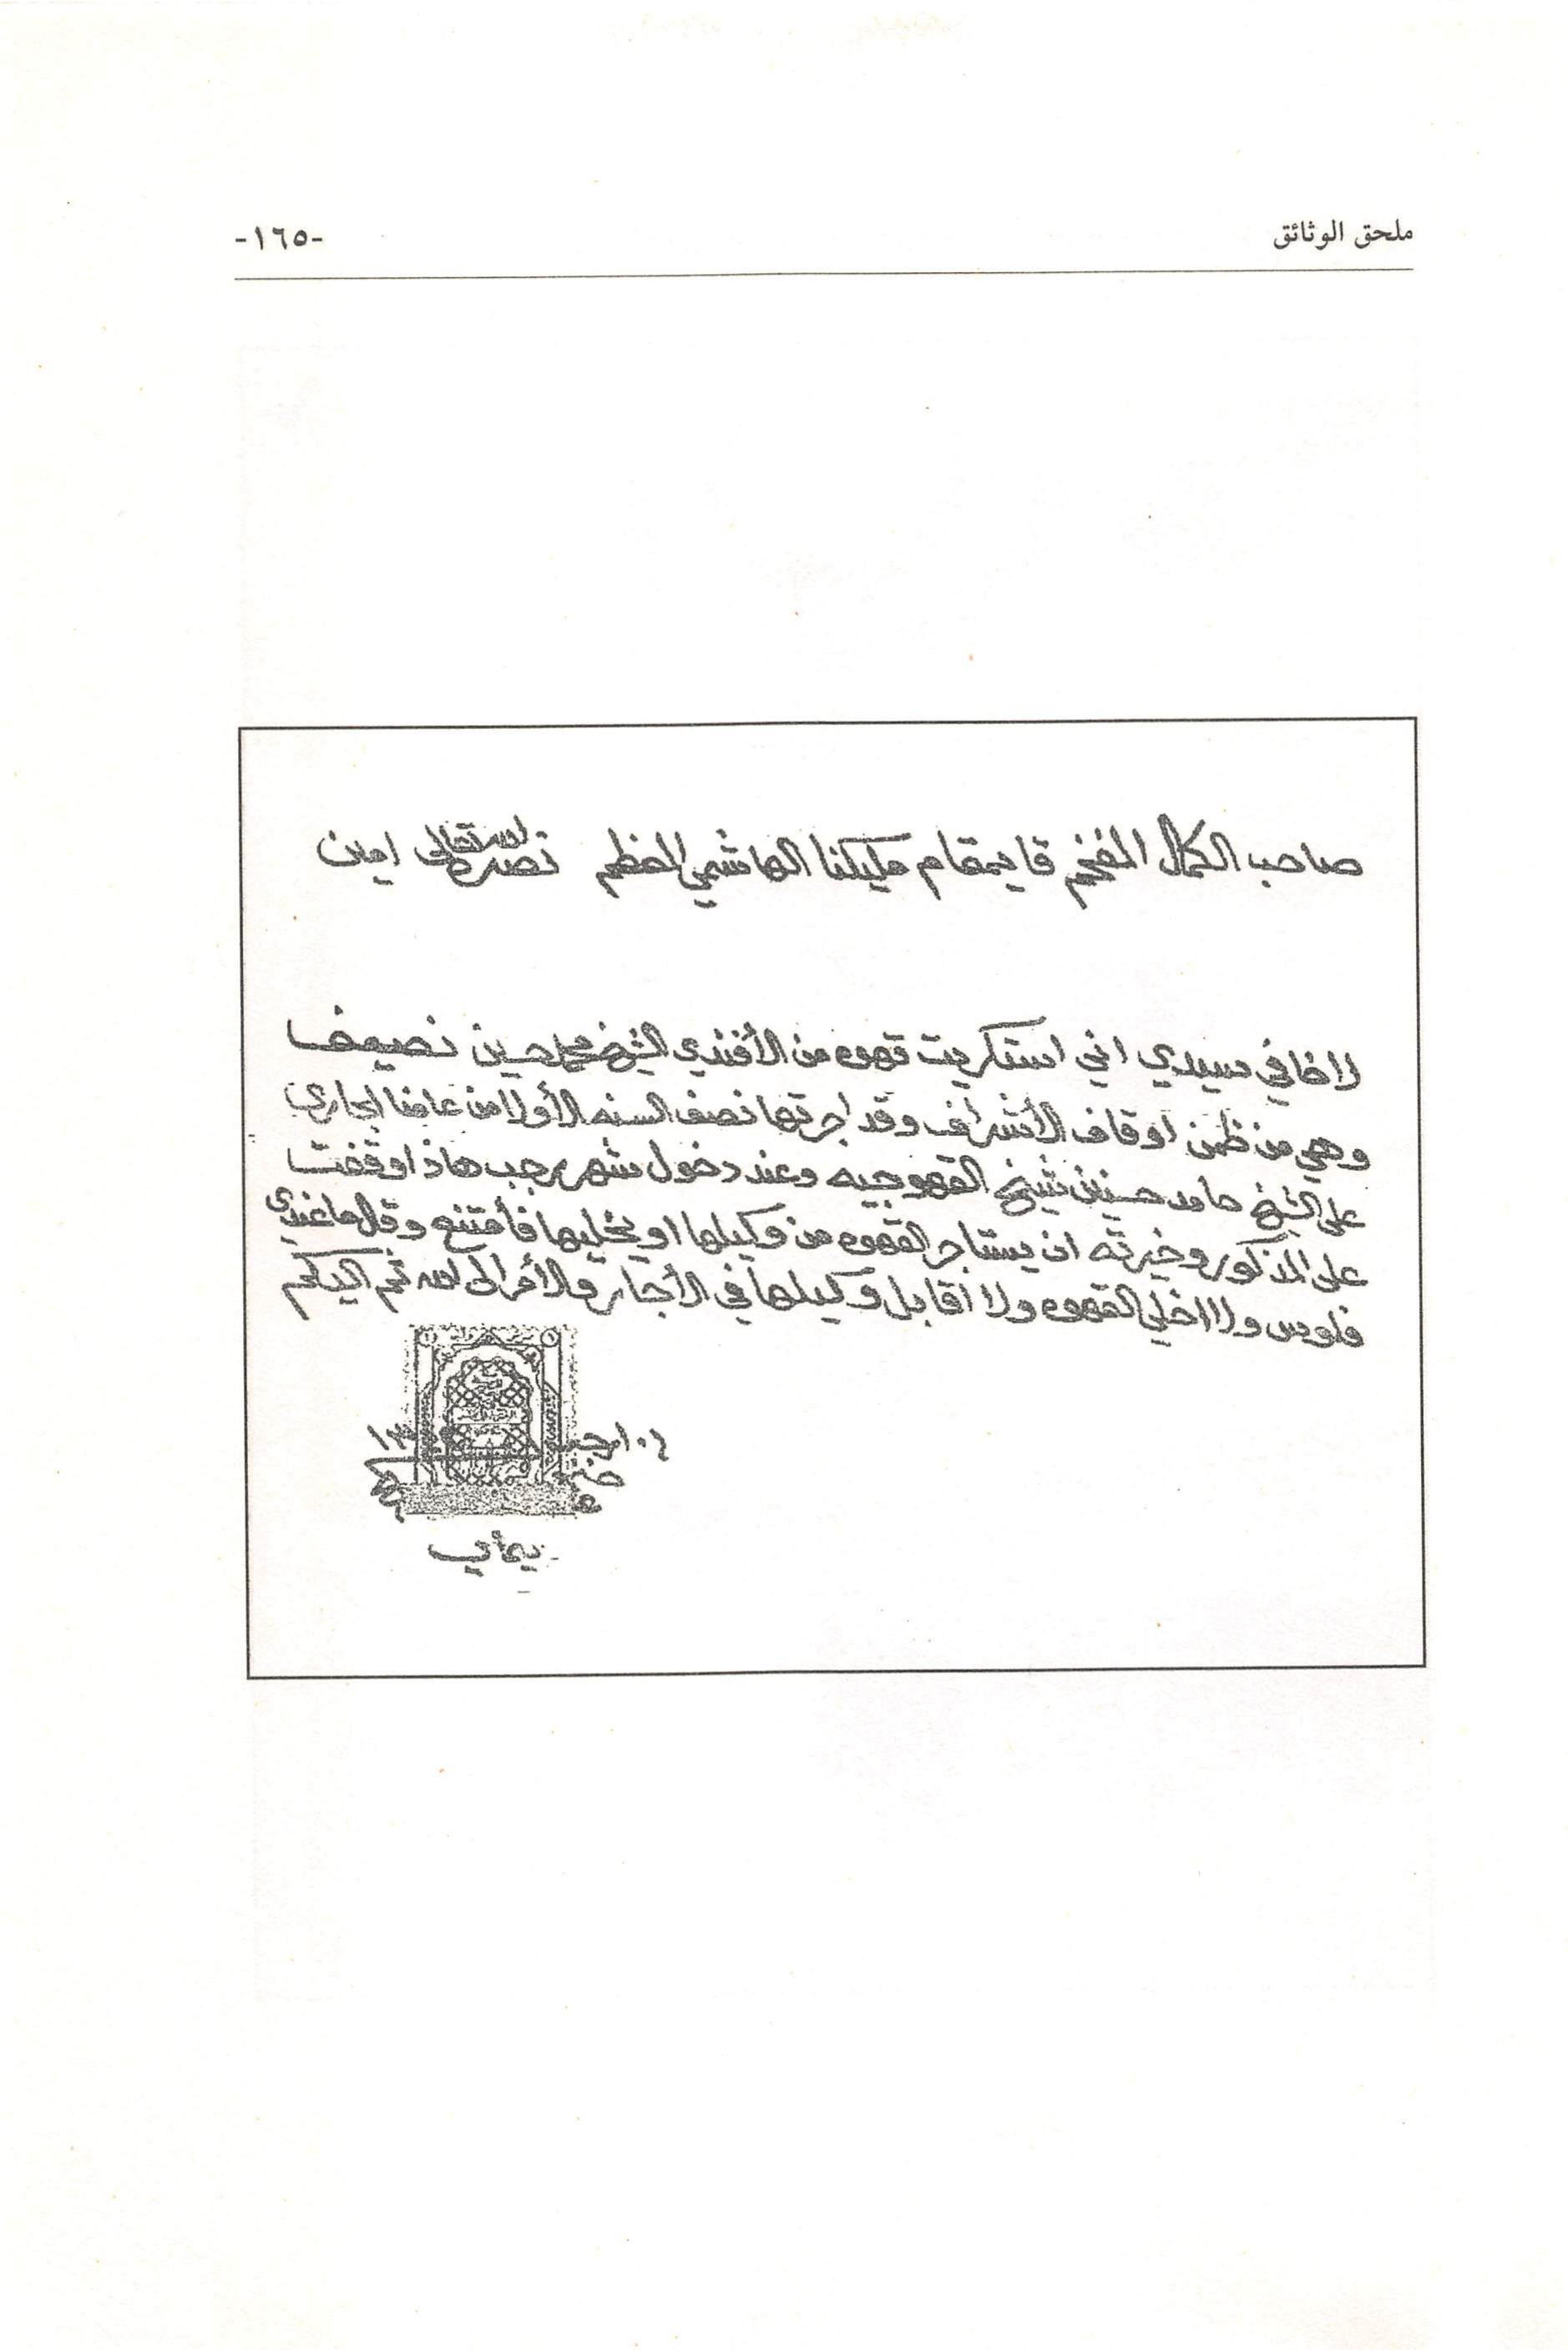 ملحق الوثائق
-١٦٥-
صاحب الكمال المفخم قايمقام مليكنا الهاشمي المعظم نصره الله تعالى امين
لا خافي سيدي اني استكريت قهوه من الأفندي الشيخ محمد حسين نصيف
وهي من ظمن اوقاف الأشراف وقد اجرتها نصف السنه الأولا من عامنا الجاري
على الشيخ حامد حسنين شيخ القهوجيه وعند دخول شهر رجب هاذا وقفت
على المذكور وخيرته ان يستاجر القهوه من وكيلها او يخليها فأمتنع وقال ما عندي
فلوس ولا اخلي القهوه ولا اقابل وكيلها في الأجار والأمر الى الله ثم اليكم
١٠ رجب
يماني